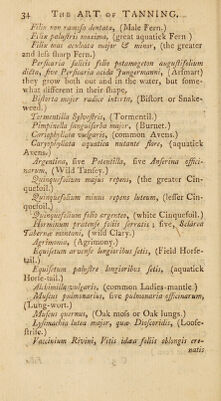 34 THE ART OF TANNING.
Filix non ramosa dentata, (Male Fern.)
Filix palustris maxima, (great aquatick Fern)
Filix mas aculeata major & minor, (the greater
and less sharp Fern.)
Persicaria folio potamogeton augustifolium
dicto, sive Persicaria acida Jungermanni, (Arsmart)
they grow both out and in the water, but some-
what different in their shape,
Bistorta major radice intorta, (Bistort or Snake-
weed.)
Tormentilla Sylvestris, (Tormentil.)
Pimpinella sanguisorba major, (Burnet.)
Caryophillata vulgaris, (common Avens.)
Caryophillata aquatica nutante flore, (aquatick
Avens.)
Argentina, sive Potentilla, sive Anserina offici-
narum, (Wild Tansey.)
Quinquefolium majus repens, (the greater Cin-
quefoil.)
Quinquefolium minus repens luteum, (lesser Cin-
quefoil.)
Quinquefolium folio argenteo, (white Cinquefoil.)
Horminum pratense foliis serratis; sive, Sclarea
Tabernæ montani, (wild Clary.)
Agrimonia, (Agrimony.)
Equisetum arvense longioribus setis, (Field Horse-
tail.)
Equisetum palustre longioribus setis, (aquatick
Horse-tail.)
Alchimilla vulgaris, (common Ladies-mantle.)
Muscus pulmonarius, sive pulmonaria officinarum,
(Lung-wort.)
Muscus quernus, (Oak moss or Oak lungs.)
Lysimachia lutea major, quæ Dioscoridis, (Loose-
strife.)
Vaccinium Rivini, Vitis idæa foliis oblongis cre-
natis